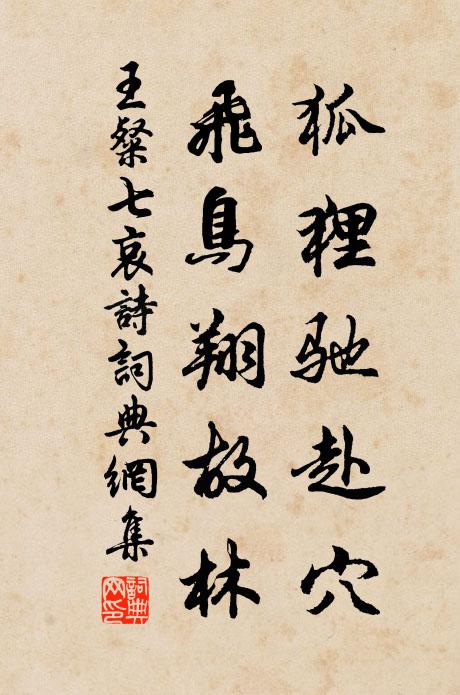 狐狸驰赴穴
飛鳥翔故林
王粲七哀詩詞典網集
詞典網印